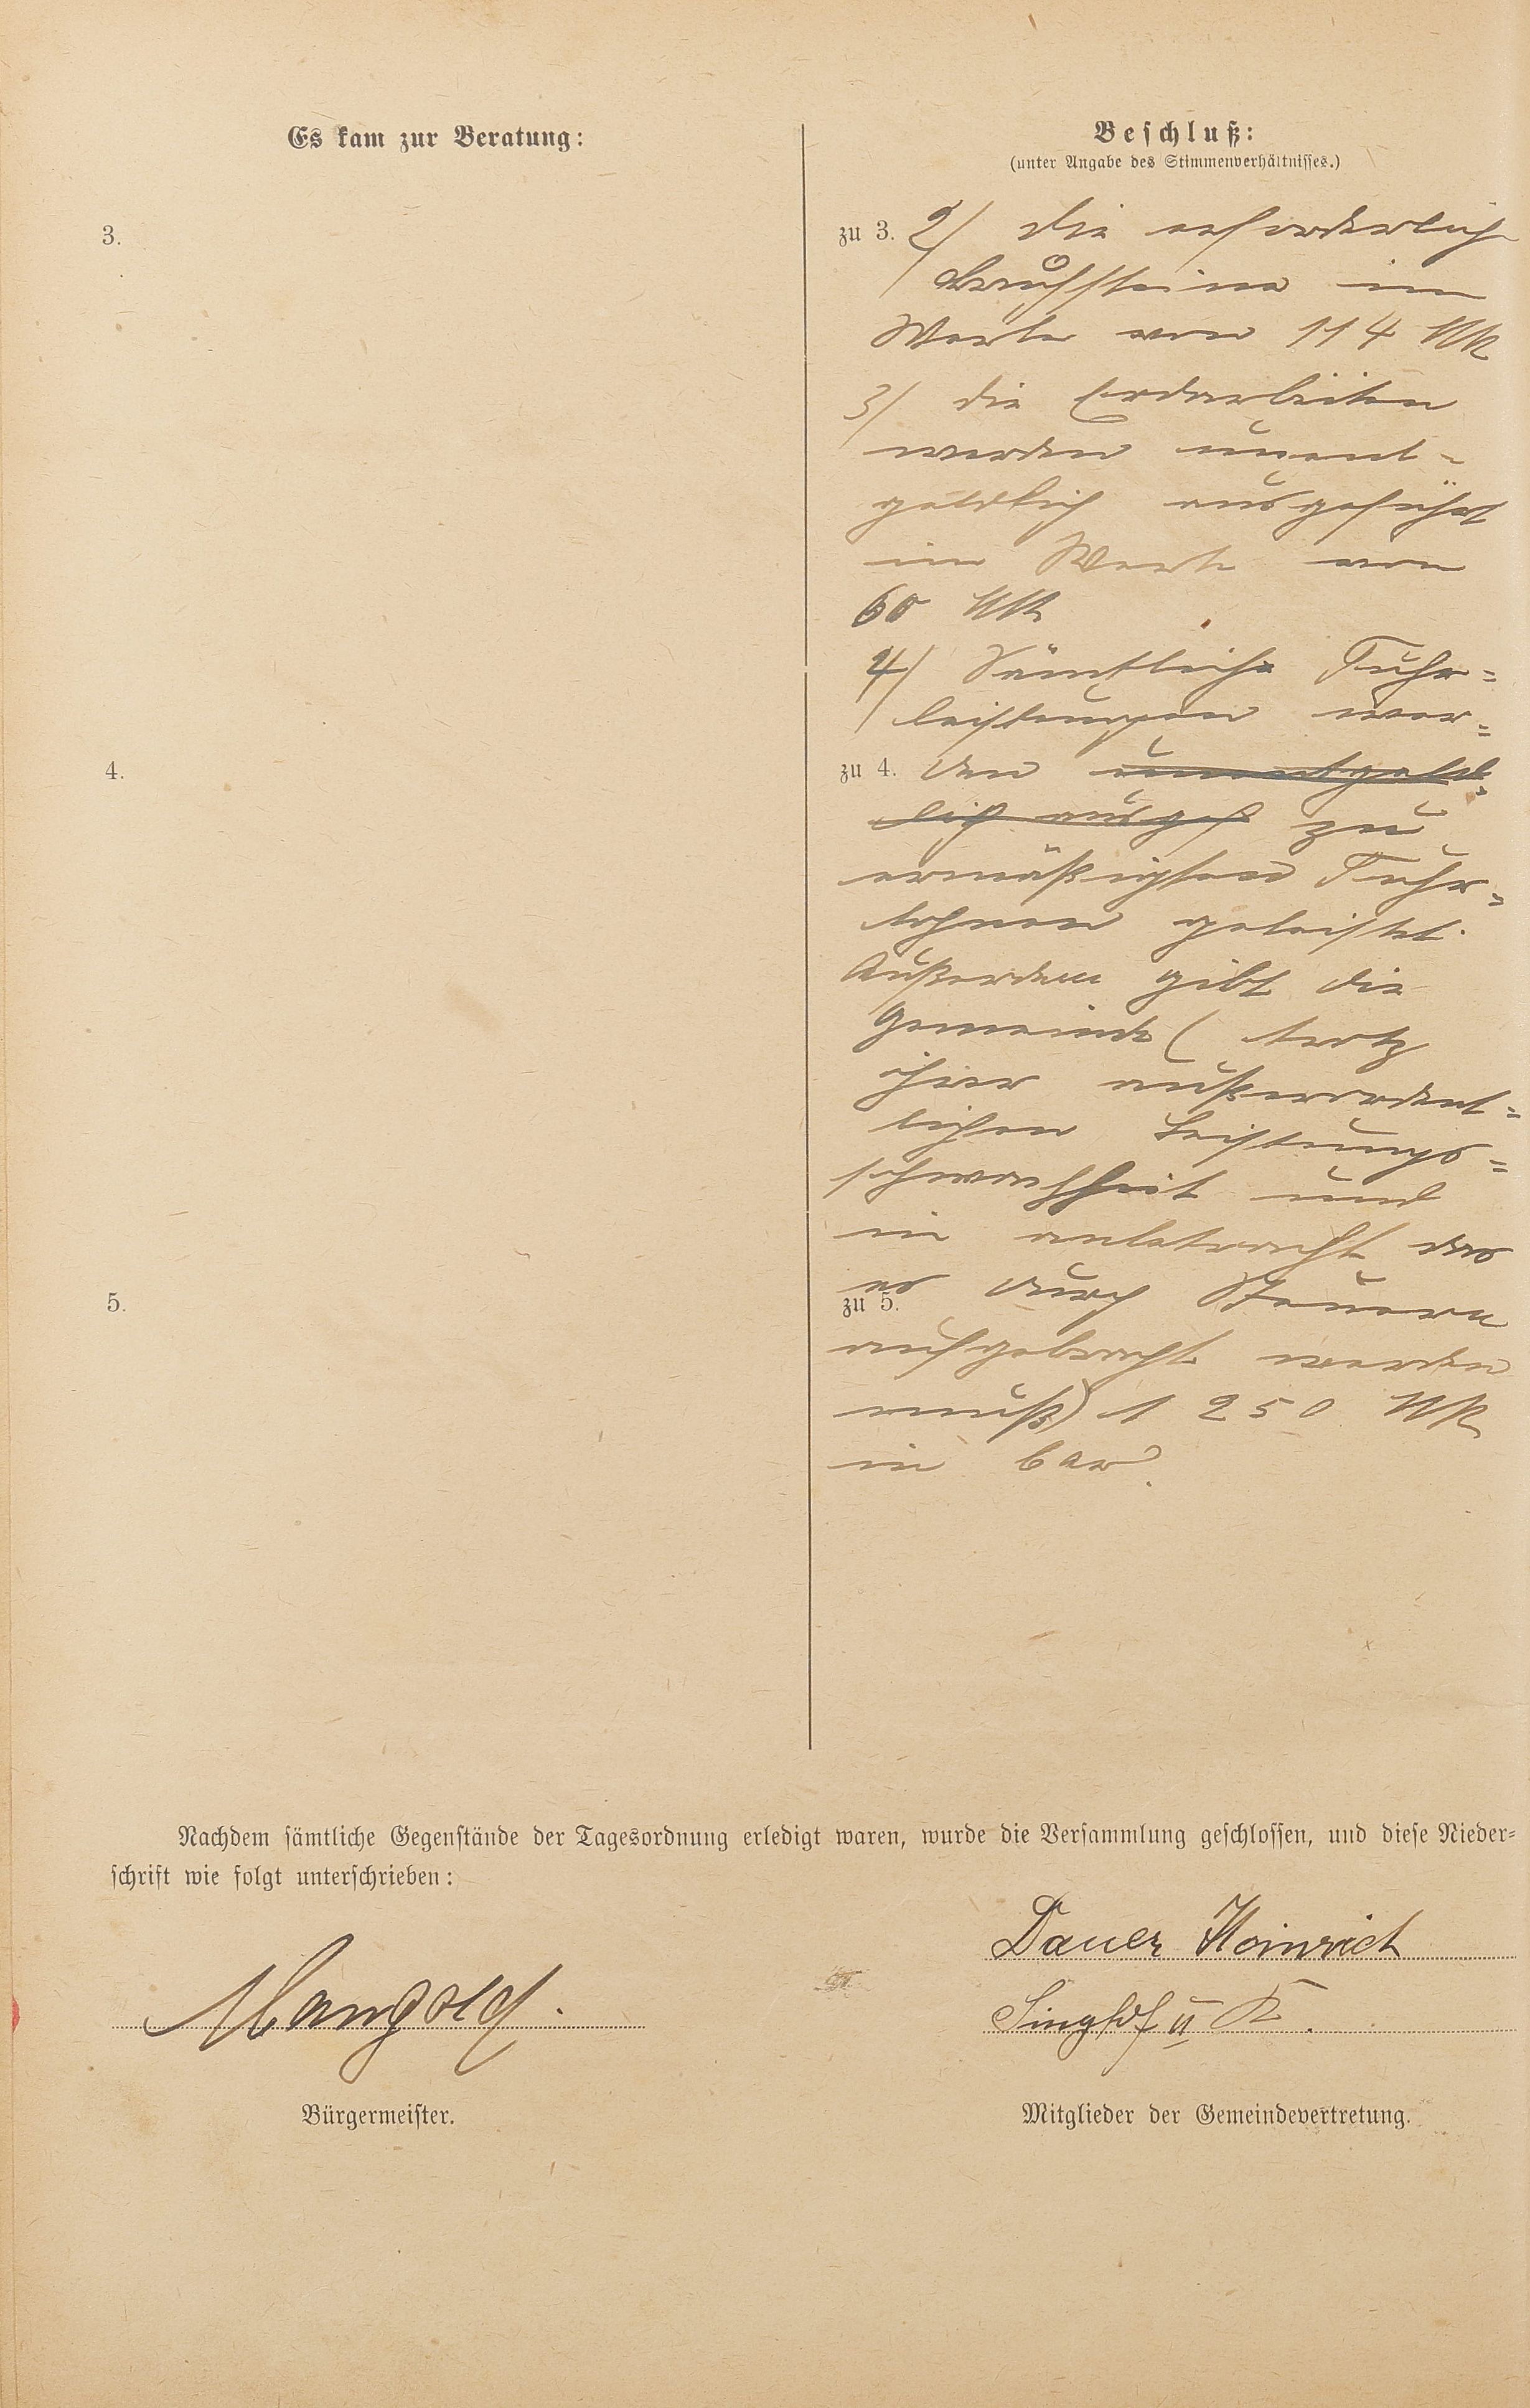 Es kam zur Beratung:
Beschluß:
(unter Angabe des Stimmenverhältnisses.)
3.
zu 3. 2/ die erforderlich
Bruchsteine im
Werte von 114 Mk
3/ die Erdarbeiten
werden unent-
geldlich ausgeführt
im Werte von
60 Mk
4/ Sämtliche Fuhr=
leistungen wer=
4.
zu 4. den unentgeld=
lich ausgef zu
ermäßigten Fuhr=
lohnen geleistet.
Außerdem gibt die
Gemeinde ( trotz
ihrer außerordent=
lichen Leistungs=
schwachheit und
in anbetracht das
5.
zu 5. es durch Steuern
aufgebracht werden
muß) 1 250 Mk
in bar.
Nachdem sämtliche Gegenstände der Tagesordnung erledigt waren, wurde die Versammlung geschlossen, und diese Nieder=
schrift wie folgt unterschrieben:
Dauer Heinrich
Mangold.
Singhof II K.
Bürgermeister.
Mitglieder der Gemeindevertretung.